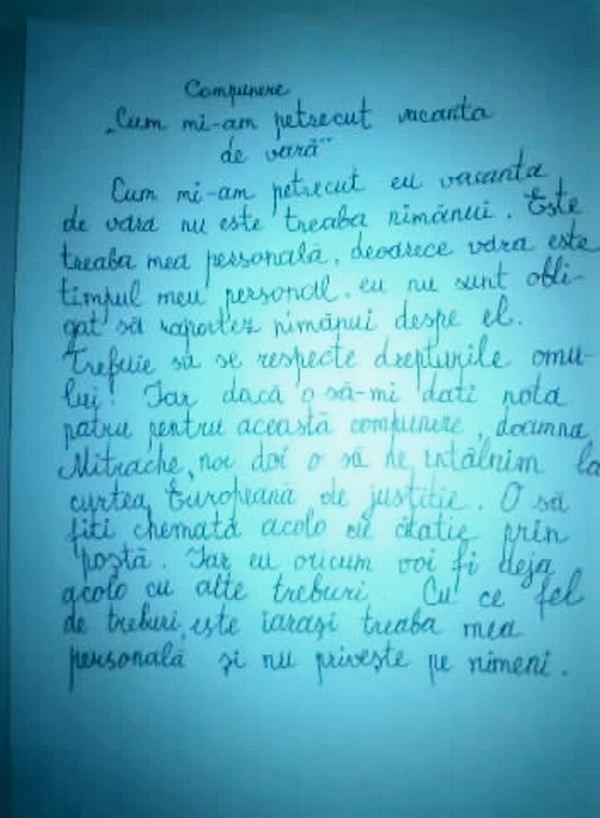 Compunere
„Cum mi-am petrecut vacanta
de vară"
Cum mi-am petrecut eu vacanta
de vara nu este treaba nimănui. Este
treaba mea personală, deoarece vara este
timpul meu personal. eu nu sunt obli-
gat să raportez nimănui despe el.
Trebuie să se respecte drepturile omu-
lui! Iar dacă o să-mi dati nota
patru pentru această compunere, doamna
Mitrache, noi doi o să ne întâlnim la
curtea Europeană de justitie. O să
fiti chemată acolo cu citatie prin
poștă. Iar eu oricum voi fi deja
acolo cu alte treburi Cu ce fel
de treburi, este iarași treaba mea
personală și nu privește pe nimeni.